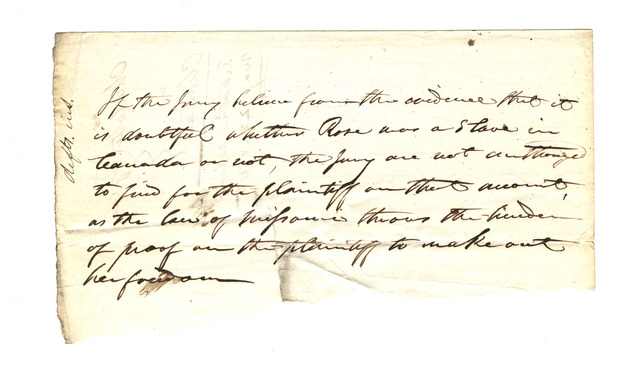 defts, ins.
If the Jury believe from the evidence that it
is doubtful whether Rose was a Slave in
Canada or not, the Jury are not authorized
to find for the plaintiff on that account,
as the law of Missouri throws the burden
of proof on the plaintiff to make out
her freedom